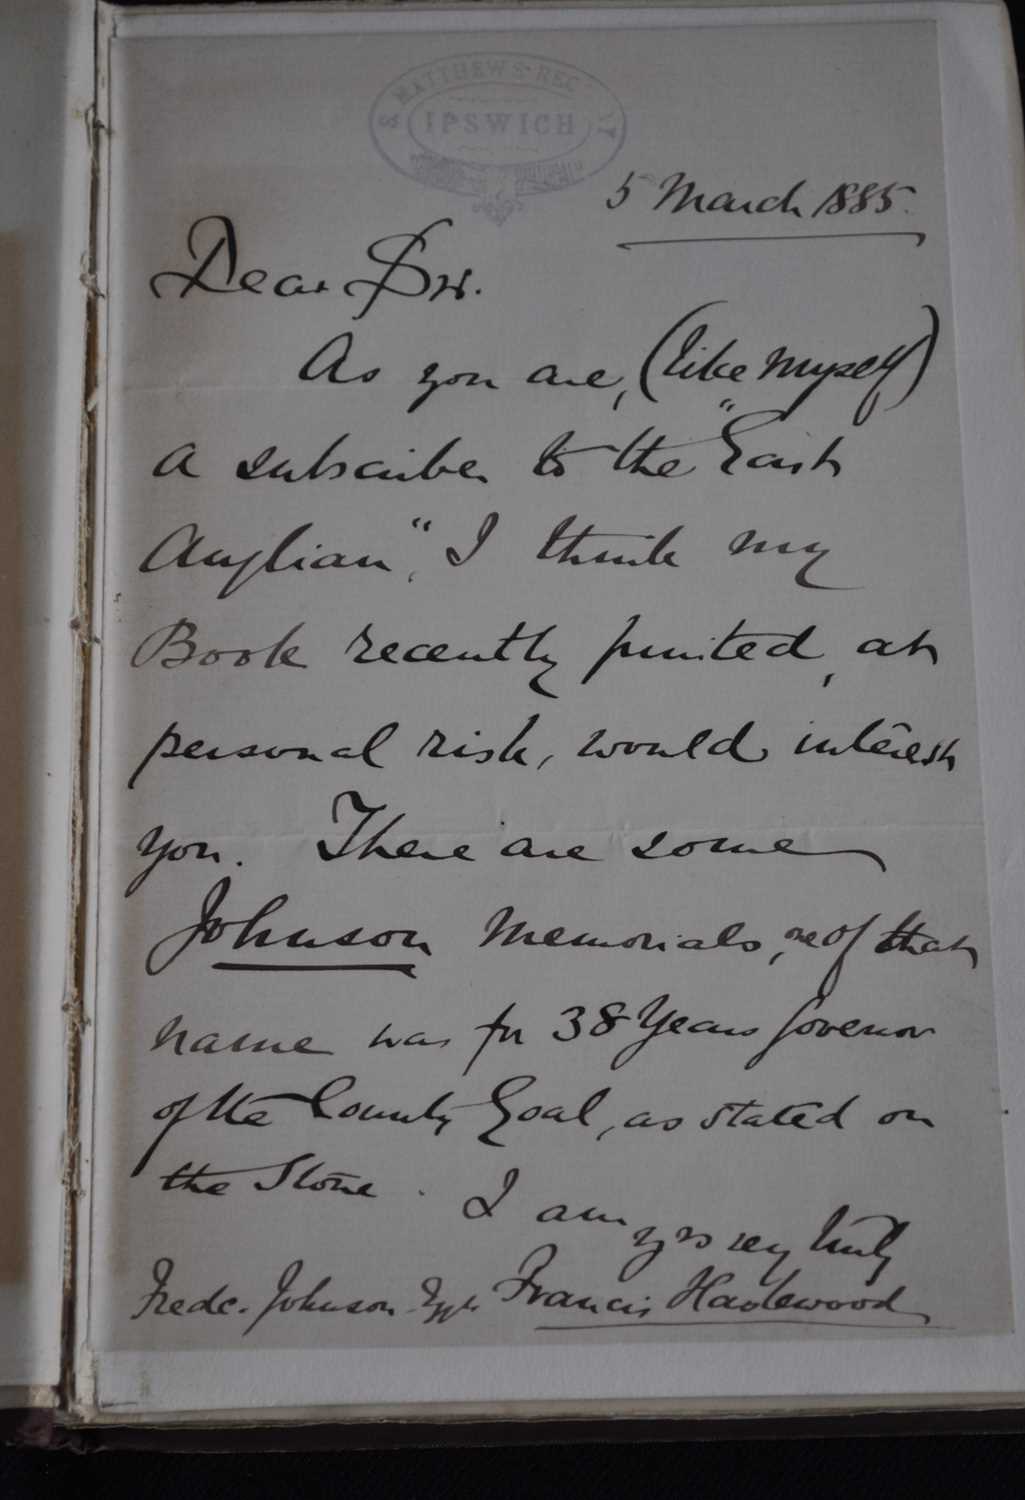 S. MATTHEWS RECTORY
IPSWICH
5 March 1885.
Dear Sir.
As you are, (like myself)
a subscriber to the "East
Anglian", I think my
Book recently printed, at
personal risk, would interest
you. There are some
Johnson Memorials, one of that
name was for 38 Years Governor
of the County Goal, as stated on
the Stone. I am
yrs very truly
Fredc. Johnson Esqre Francis Haslewood